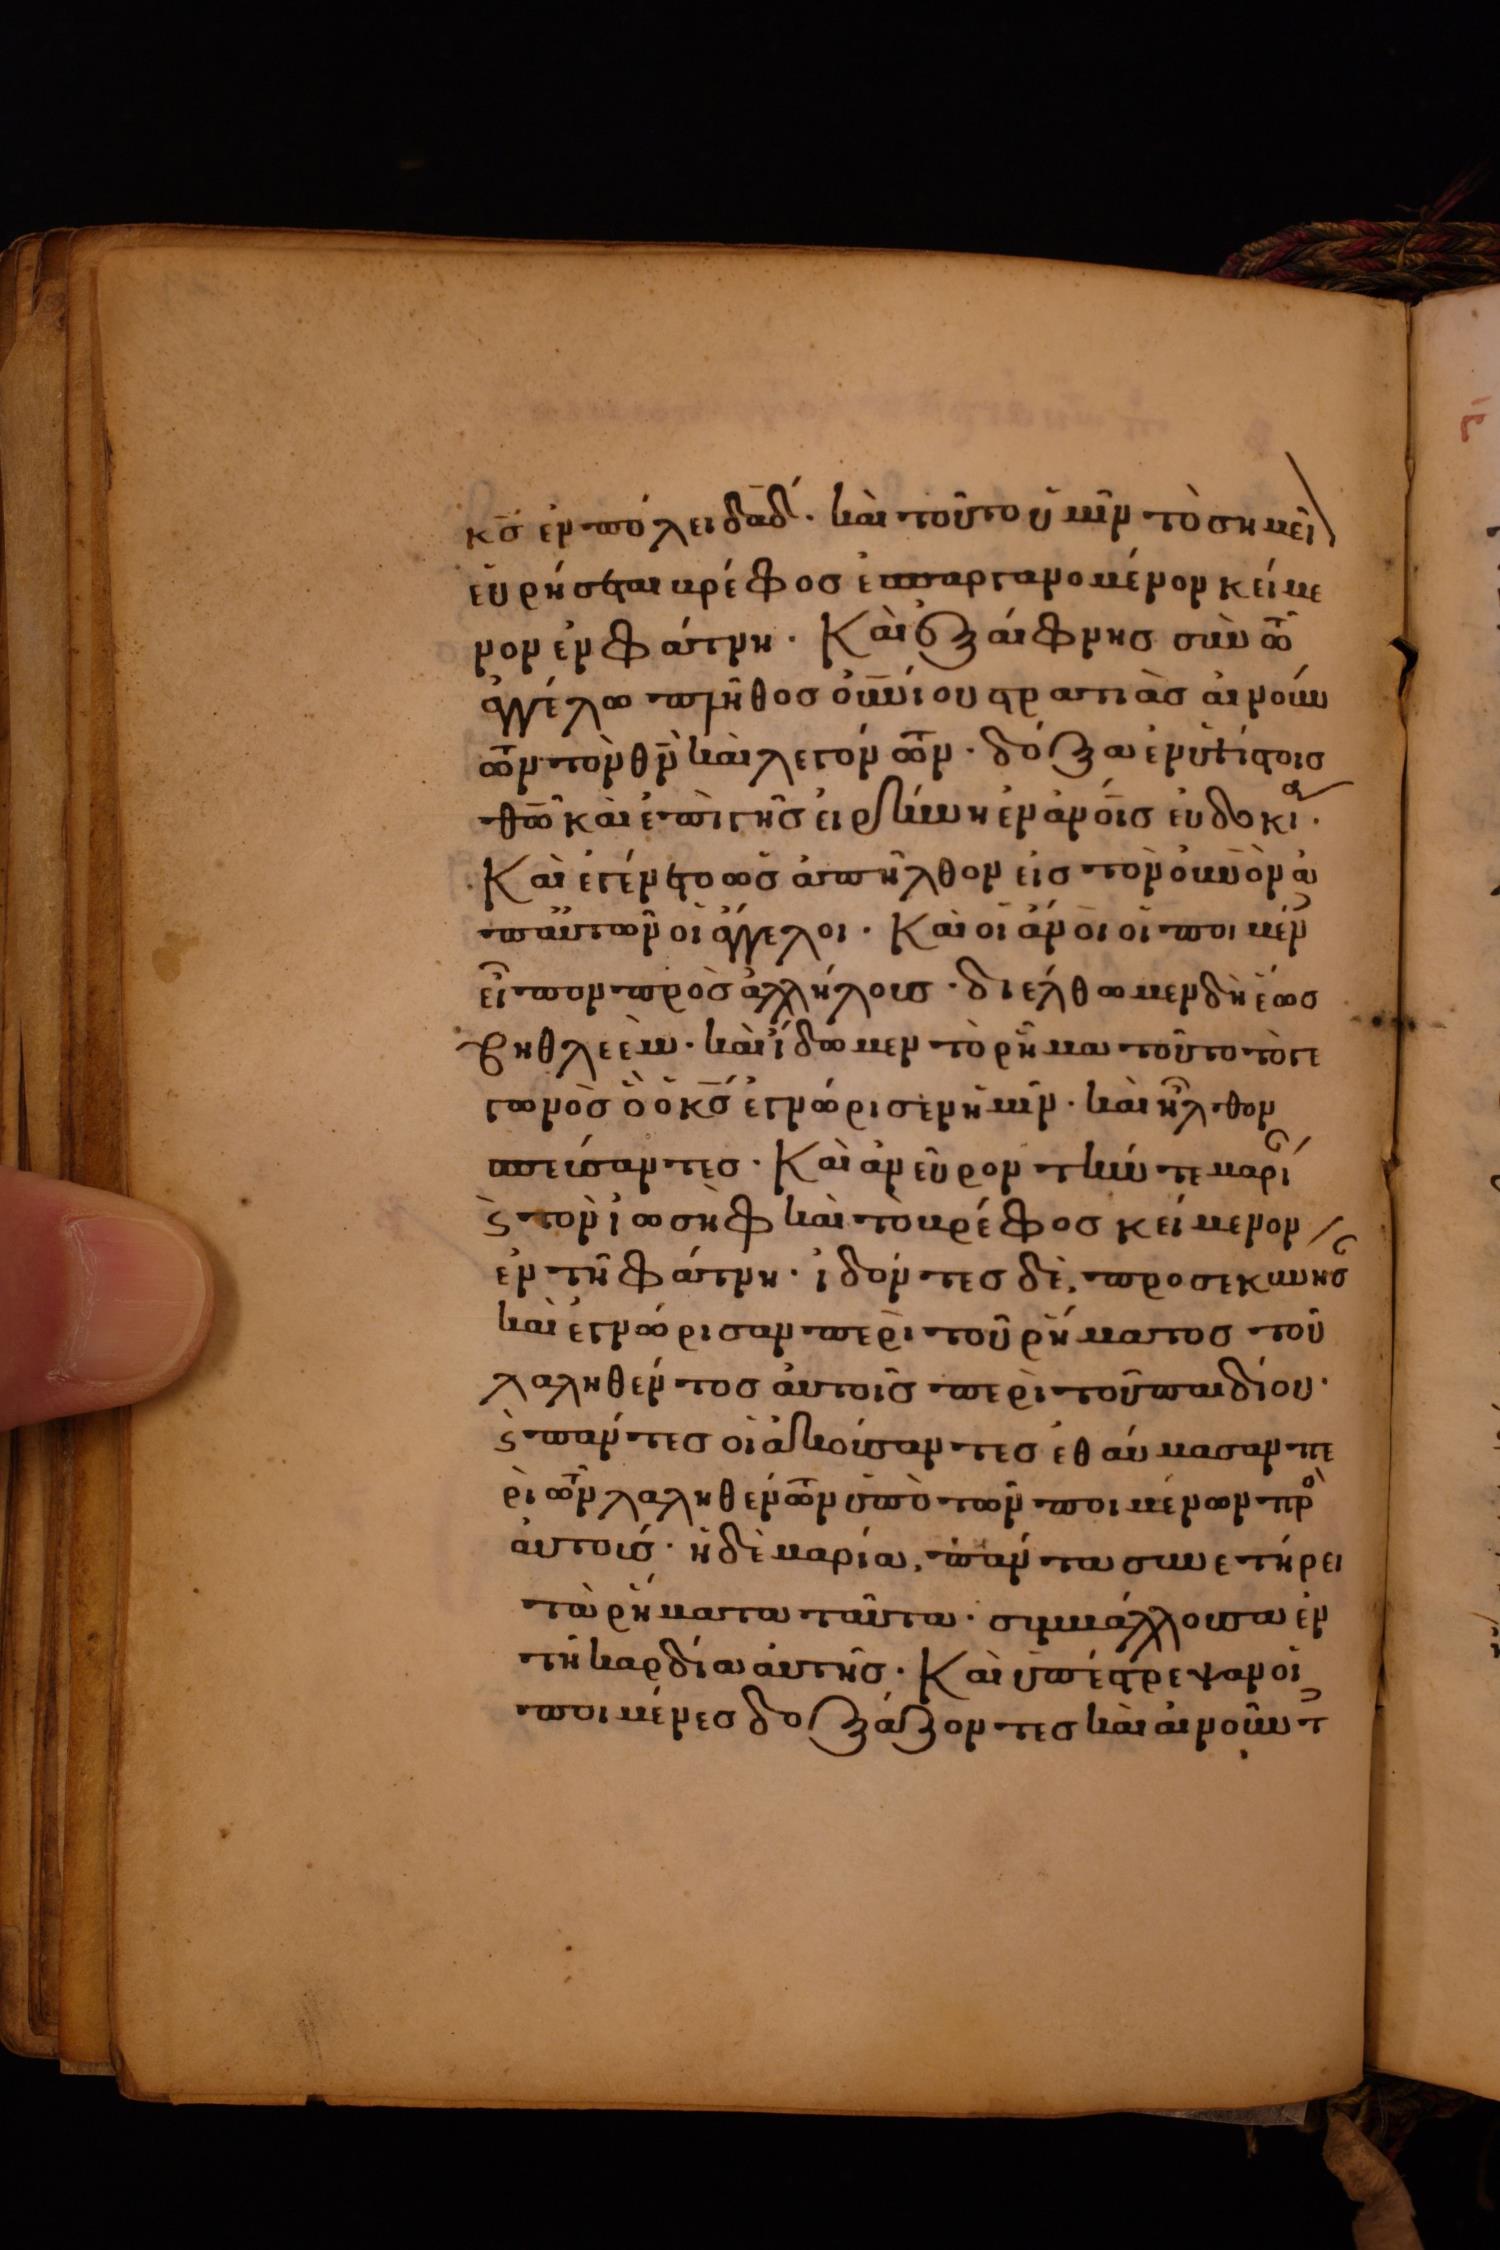 κς̄ ἐν πόλει δᾱδ́· καὶ τοῦτο ὑμῖν τὸ σημεῖ
εὑρήσεται βρέφος ἐσπαργανομένον κείμε
νον ἐν φάτνη· Καὶ ἐξαίφνης σὺν τῶ
ἀγγέλω πλῆθος οὐνίου στρατιὰς αἰνούν
των τὸν θν̄ καὶ λεγόντων· δόξα ἐν ὑψίστοις
θω̄ καὶ ἐπὶ γῆς εἰρήνη ἐν ἀνοις εὐδοκία·
Καὶ ἐγένετο ὡς ἀπῆλθον εἰς τὸν οὐνὸν ἀ
π' αὐτῶν οἱ ἄγγελοι· Καὶ οἱ ἄνοι οἱ ποιμέν
εἶπον πρὸς ἀλλήλους· διέλθωμεν δὴ ἕως
βηθλεὲμ· καὶ ἴδωμεν τὸ ρῆμα τοῦτο τὸ γε
γωνὸς ὃ ὁ κς̄ ἐγνώρισεν ἡμῖν· καὶ ἦλθον
σπεύσαντες· Καὶ ἀνεῦρον τὴν τε μαρί
ϛ τὸν ἰωσὴφ καὶ τὸ βρέφος κείμενον
ἐν τῆ φάτνη· ἰδόντες δὲ, προσεκύνησ
καὶ ἐγνώρισαν περὶ τοῦ ρήματος τοῦ
λαληθέντος αὐτοῖς περὶ τοῦ παιδίου·
ϛ πάντες οἱ ἀκούσαντες ἐθαύμασαν πε
ρὶ τῶν λαληθέντων ὑπὸ τῶν ποιμένων πρὸ
αὐτούς· ἡ δὲ μαρία, πάντα συνετήρει
τὰ ρήματα ταῦτα· συμβάλλουσα ἐν
τῆ καρδία αὐτῆς· Καὶ ὑπέστρεψαν οἱ
ποιμένες δοξάζοντες καὶ αἰνοῦντ